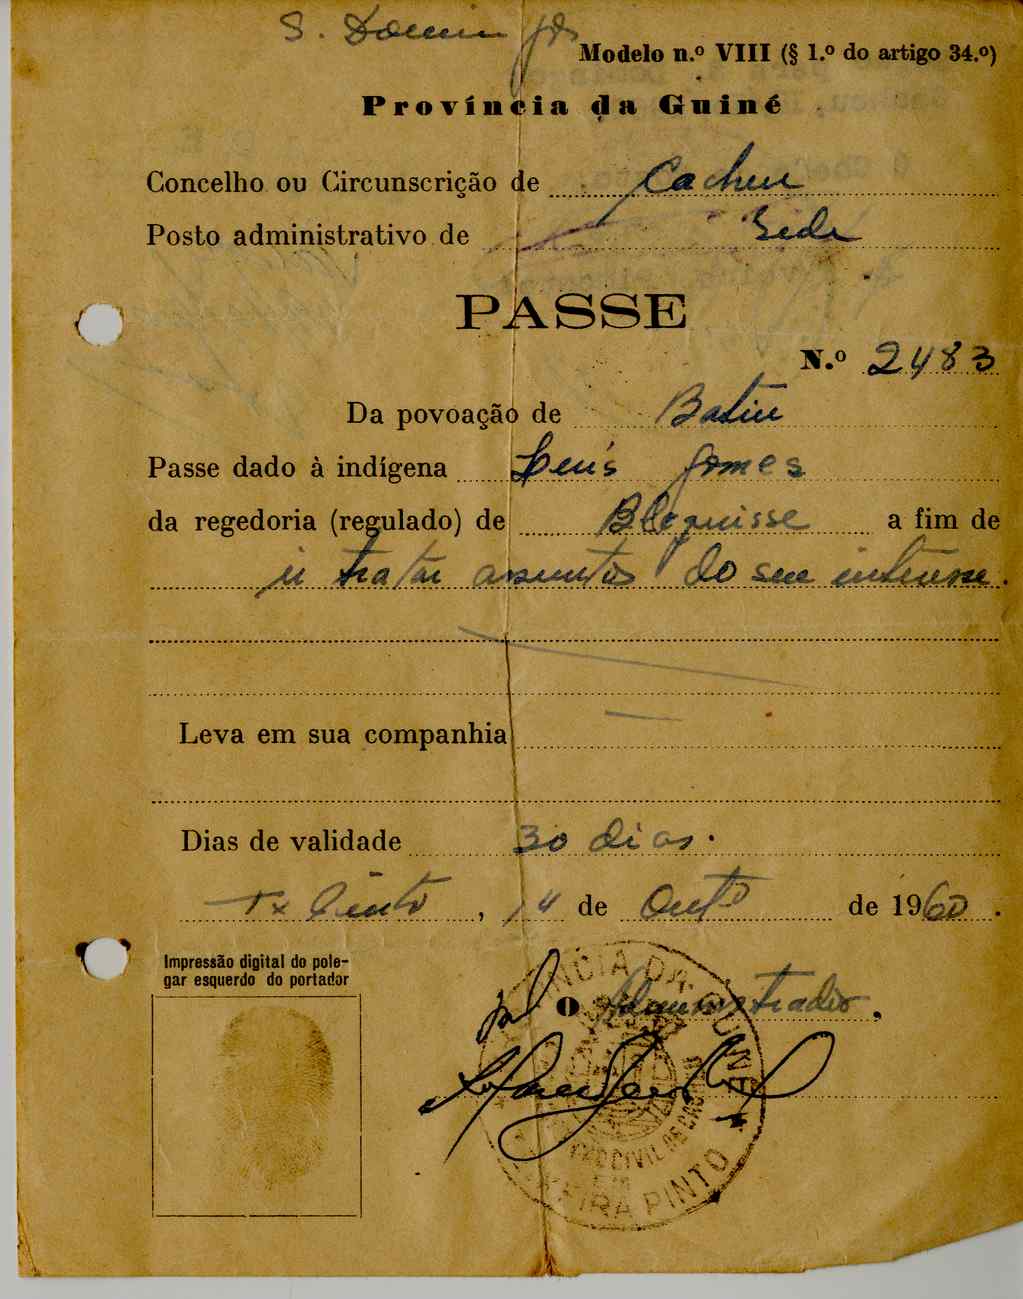 S. Domingos
Modelo n.º VIII (§ 1.º do artigo 34.º)
Província da Guiné
Concelho ou Circunscrição de Cacheu
Posto administrativo de Sede
PASSE
N.º 2483
Da povoação de Batiu
Passe dado à indígena Luís Gomes
da regedoria (regulado) de Bloquisse a fim de
ir tratar assuntos do seu interesse.
Leva em sua companhia
Dias de validade 30 dias.
Tx Pinto, 14 de Outº de 1960.
Impressão digital do pole-
gar esquerdo do portador
O Administrador,
PROVÍNCIA DA GUINÉ
CIVIL DE CACHEU
TEIXEIRA PINTO